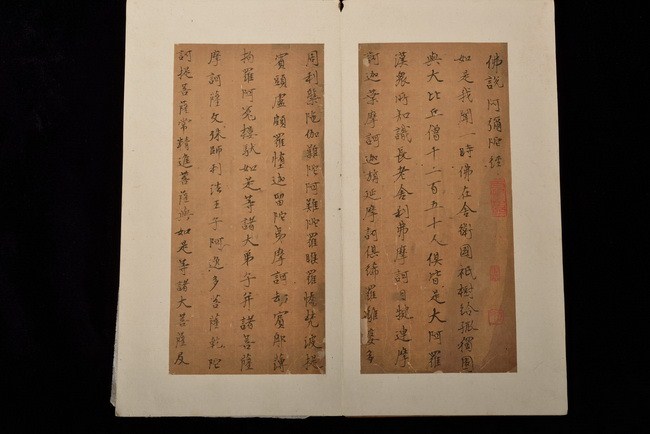 佛說阿彌陀經
如是我聞一時佛在舍衛國祇樹給孤獨園
與大比丘僧千二百五十人俱皆是大阿羅
漢衆所知識長老舍利弗摩訶目揵連摩
訶迦葉摩訶迦旃延摩訶俱絺羅離婆多
周利槃陀伽難陀阿難陀羅睺羅憍梵波提
賓頭盧頗羅墮迦留陀夷摩訶劫賓那薄
拘羅阿㝹樓馱如是等諸大弟子并諸菩薩
摩訶薩文殊師利法王子阿逸多菩薩乾陀
訶提菩薩常精進菩薩與如是等諸大菩薩及